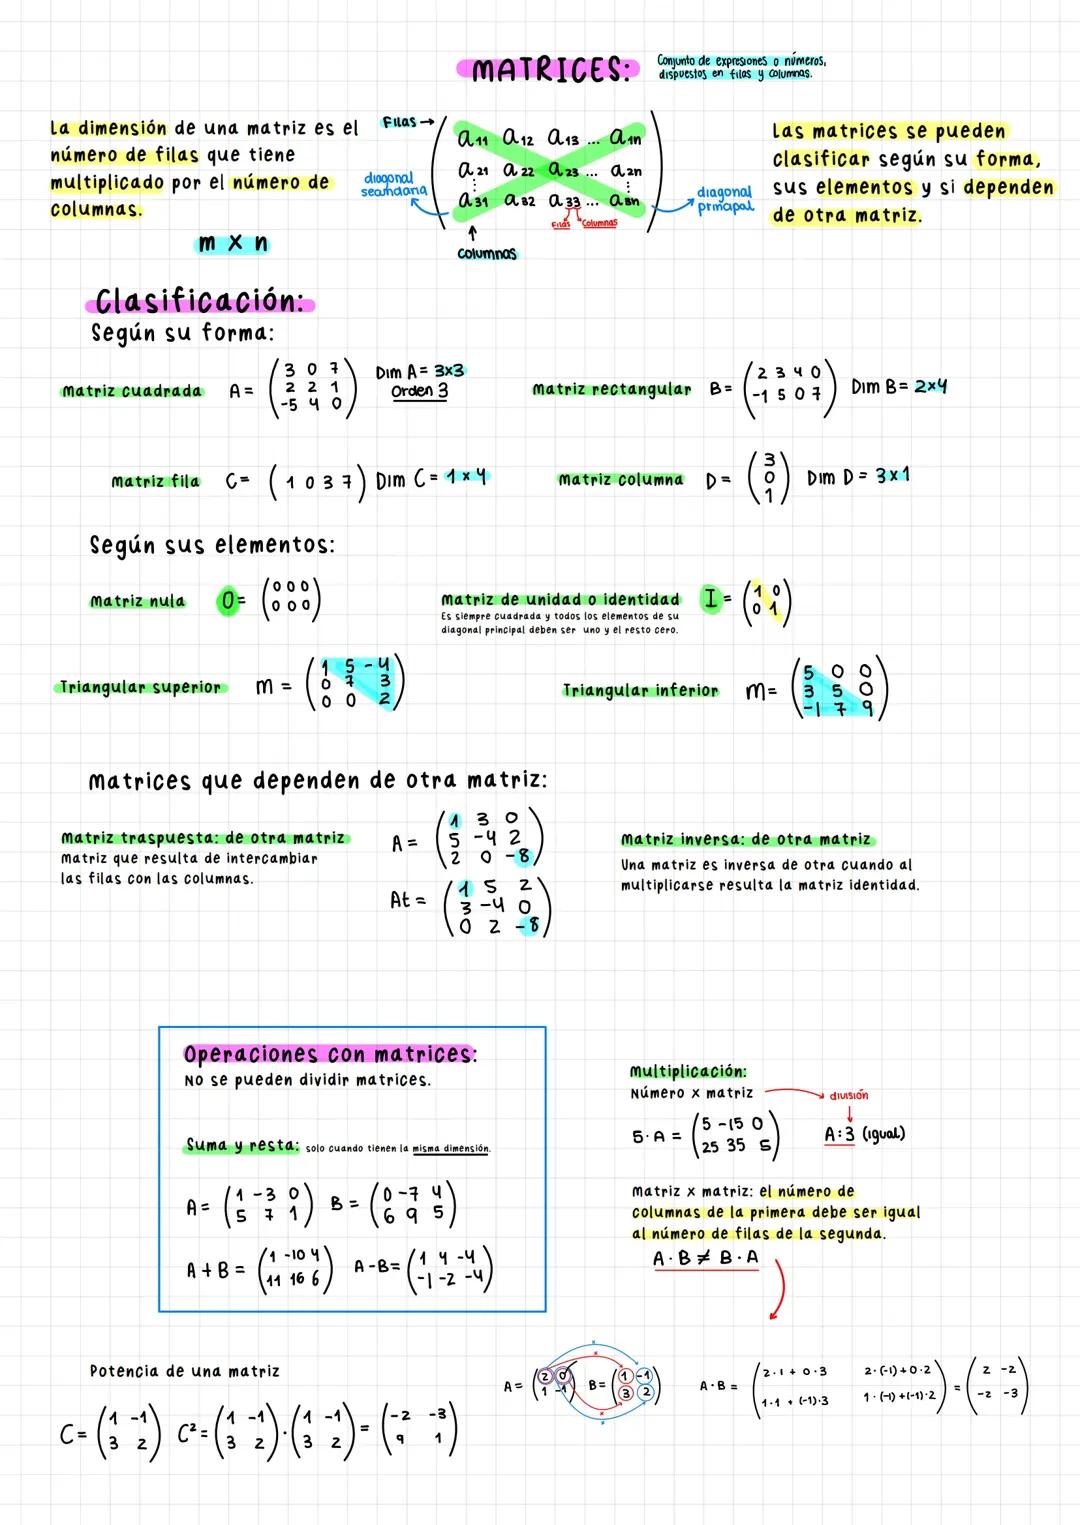 MATRICES:
Conjunto de expresiones o números,
dispuestos en filas y columnas.
La dimensión de una matriz es el
número de filas que tiene
multiplicado por el número de
columnas.
m x n
Filas →
a11 a12 a13 ... a1n
a21 a22 a23 ... a2n
⋮ ⋮
a31 a32 a33 ... a3n
diagonal
secundaria
diagonal
principal
Filas Columnas
columnas
Las matrices se pueden
clasificar según su forma,
sus elementos y si dependen
de otra matriz.
Clasificación:
Según su forma:
Matriz cuadrada A =
3 0 7
2 2 1
-5 4 0
Dim A = 3x3
Orden 3
Matriz rectangular B =
2 3 4 0
-1 5 0 7
Dim B = 2x4
Matriz fila C = (1 0 3 7) Dim C = 1 x 4
Matriz columna D =
3
0
1
Dim D = 3x1
Según sus elementos:
Matriz nula O =
0 0 0
0 0 0
Matriz de unidad o identidad I =
1 0
0 1
Es siempre cuadrada y todos los elementos de su
diagonal principal deben ser uno y el resto cero.
Triangular superior m =
1 5 -4
0 7 3
0 0 2
Triangular inferior m =
5 0 0
3 5 0
-1 7 9
Matrices que dependen de otra matriz:
Matriz traspuesta: de otra matriz
Matriz que resulta de intercambiar
las filas con las columnas.
A =
1 3 0
5 -4 2
2 0 -8
At =
1 5 2
3 -4 0
0 2 -8
Matriz inversa: de otra matriz
Una matriz es inversa de otra cuando al
multiplicarse resulta la matriz identidad.
Operaciones con matrices:
No se pueden dividir matrices.
Suma y resta: solo cuando tienen la misma dimensión.
A =
1 -3 0
5 7 1
B =
0 -7 4
6 9 5
A + B =
1 -10 4
11 16 6
A - B =
1 4 -4
-1 -2 -4
Multiplicación:
Número x matriz
división
5 · A =
5 -15 0
25 35 5
A:3 (igual)
Matriz x matriz: el número de
columnas de la primera debe ser igual
al número de filas de la segunda.
A · B ≠ B · A
Potencia de una matriz
C =
1 -1
3 2
C² =
1 -1
3 2
·
1 -1
3 2
=
-2 -3
9 1
A =
2 0
1 -1
B =
1 -1
3 2
x
x
x
x
A · B =
2·1 + 0·3 2·(-1)+0·2
1·1 + (-1)·3 1·(-1)+(-1)·2
=
2 -2
-2 -3